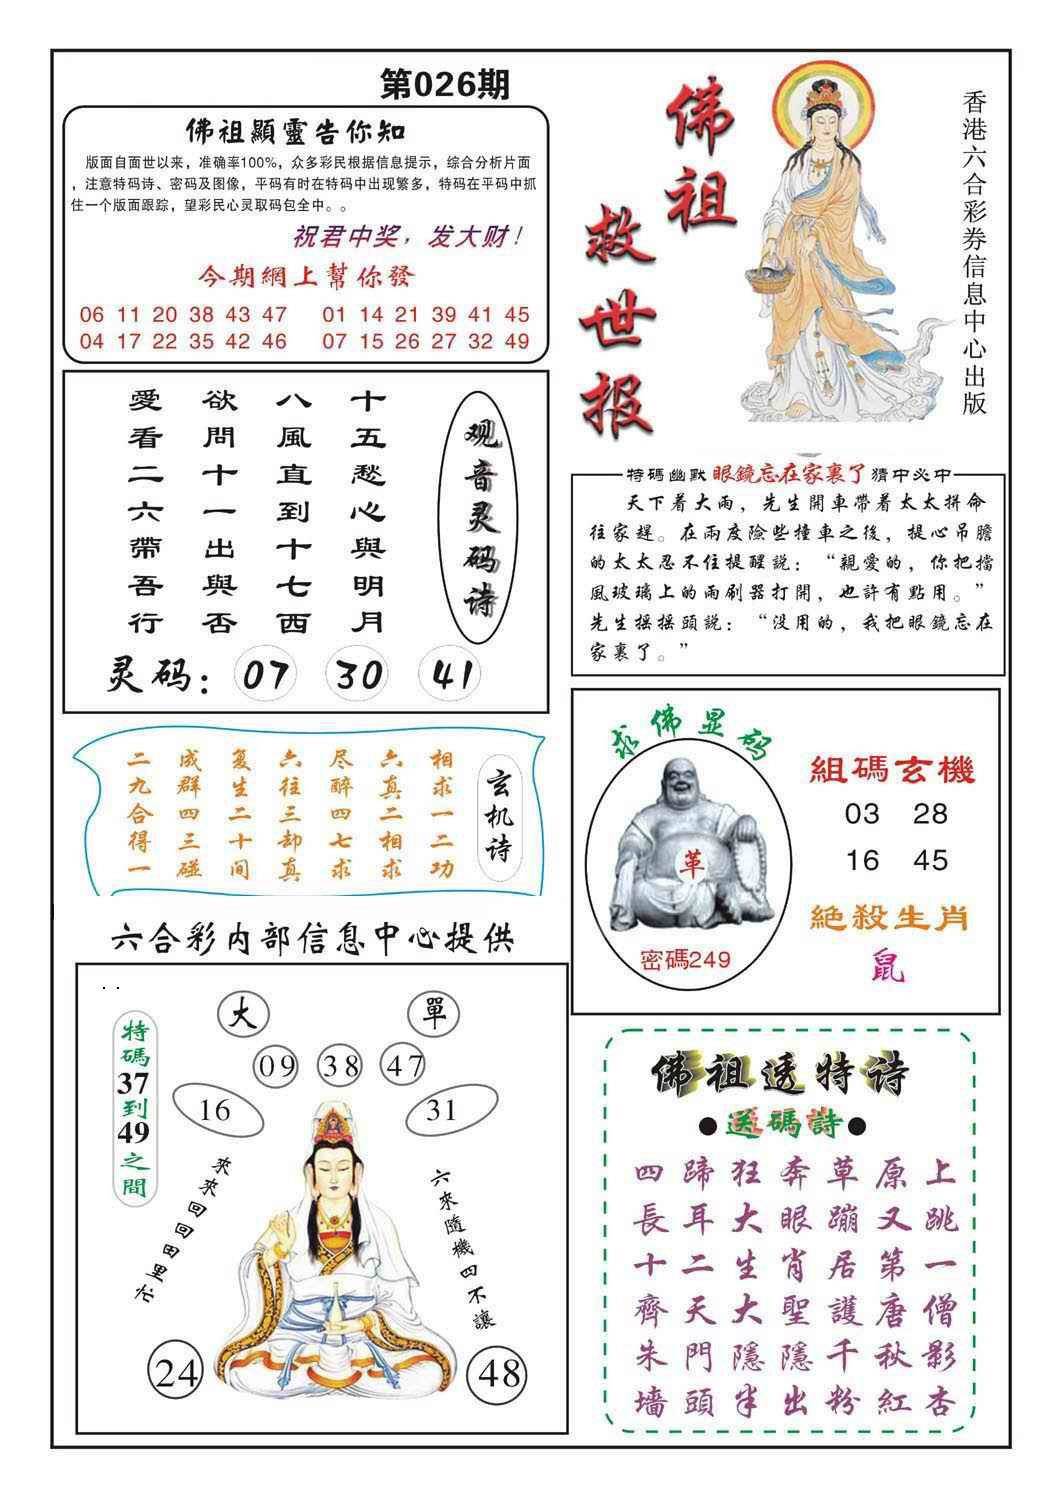 第026期
佛祖顯靈告你知
版面自面世以来，准确率100%，众多彩民根据信息提示，综合分析片面
，注意特码诗、密码及图像，平码有时在特码中出现繁多，特码在平码中抓
住一个版面跟踪，望彩民心灵取码包全中。。
祝君中奖，发大财！
今期網上幫你發
06 11 20 38 43 47 01 14 21 39 41 45
04 17 22 35 42 46 07 15 26 27 32 49
佛祖
救世报
香港六合彩券信息中心出版
观音灵码诗
十五愁心與明月
八風直到十七西
欲問十一出與否
愛看二六帶吾行
灵码：07 30 41
特碼幽默 眼鏡忘在家裏了 猜中必中
天下着大雨，先生開車帶着太太拼命
往家趕。在兩度險些撞車之後，提心吊膽
的太太忍不住提醒説：“親愛的，你把擋
風玻璃上的雨刷器打開，也許有點用。”
先生摇摇頭説：“没用的，我把眼鏡忘在
家裏了。”
玄机诗
相求一二功
六真二相求
尽醉四七求
六往三却真
复生二十间
成群四三碰
二九合得一
求佛显码
革
密碼249
組碼玄機
03 28
16 45
絶殺生肖
鼠
六合彩内部信息中心提供
特碼37到49之間
大 單
09 38 47
16 31
來來回回田里忙
六來隨機四不讓
24 48
佛祖透特诗
●送碼詩●
四蹄狂奔草原上
長耳大眼蹦又跳
十二生肖居第一
齊天大聖護唐僧
朱門隱隱千秋影
墻頭半出粉紅杏